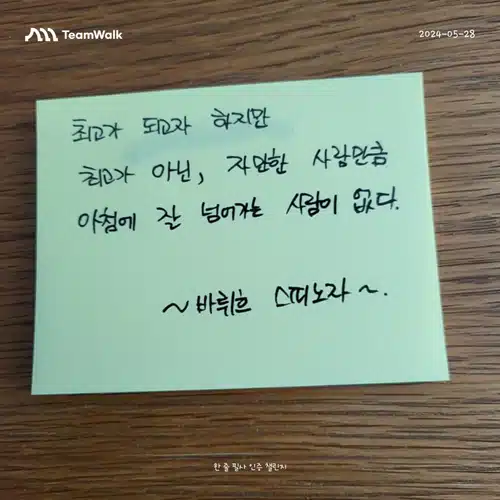 TeamWalk
2024-05-28
최고가 되고자 하지만
최고가 아닌, 자만한 사람만큼
아첨에 잘 넘어가는 사람이 없다.
~바뤼흐 스피노자~.
한 줄 필사 인증 챌린지